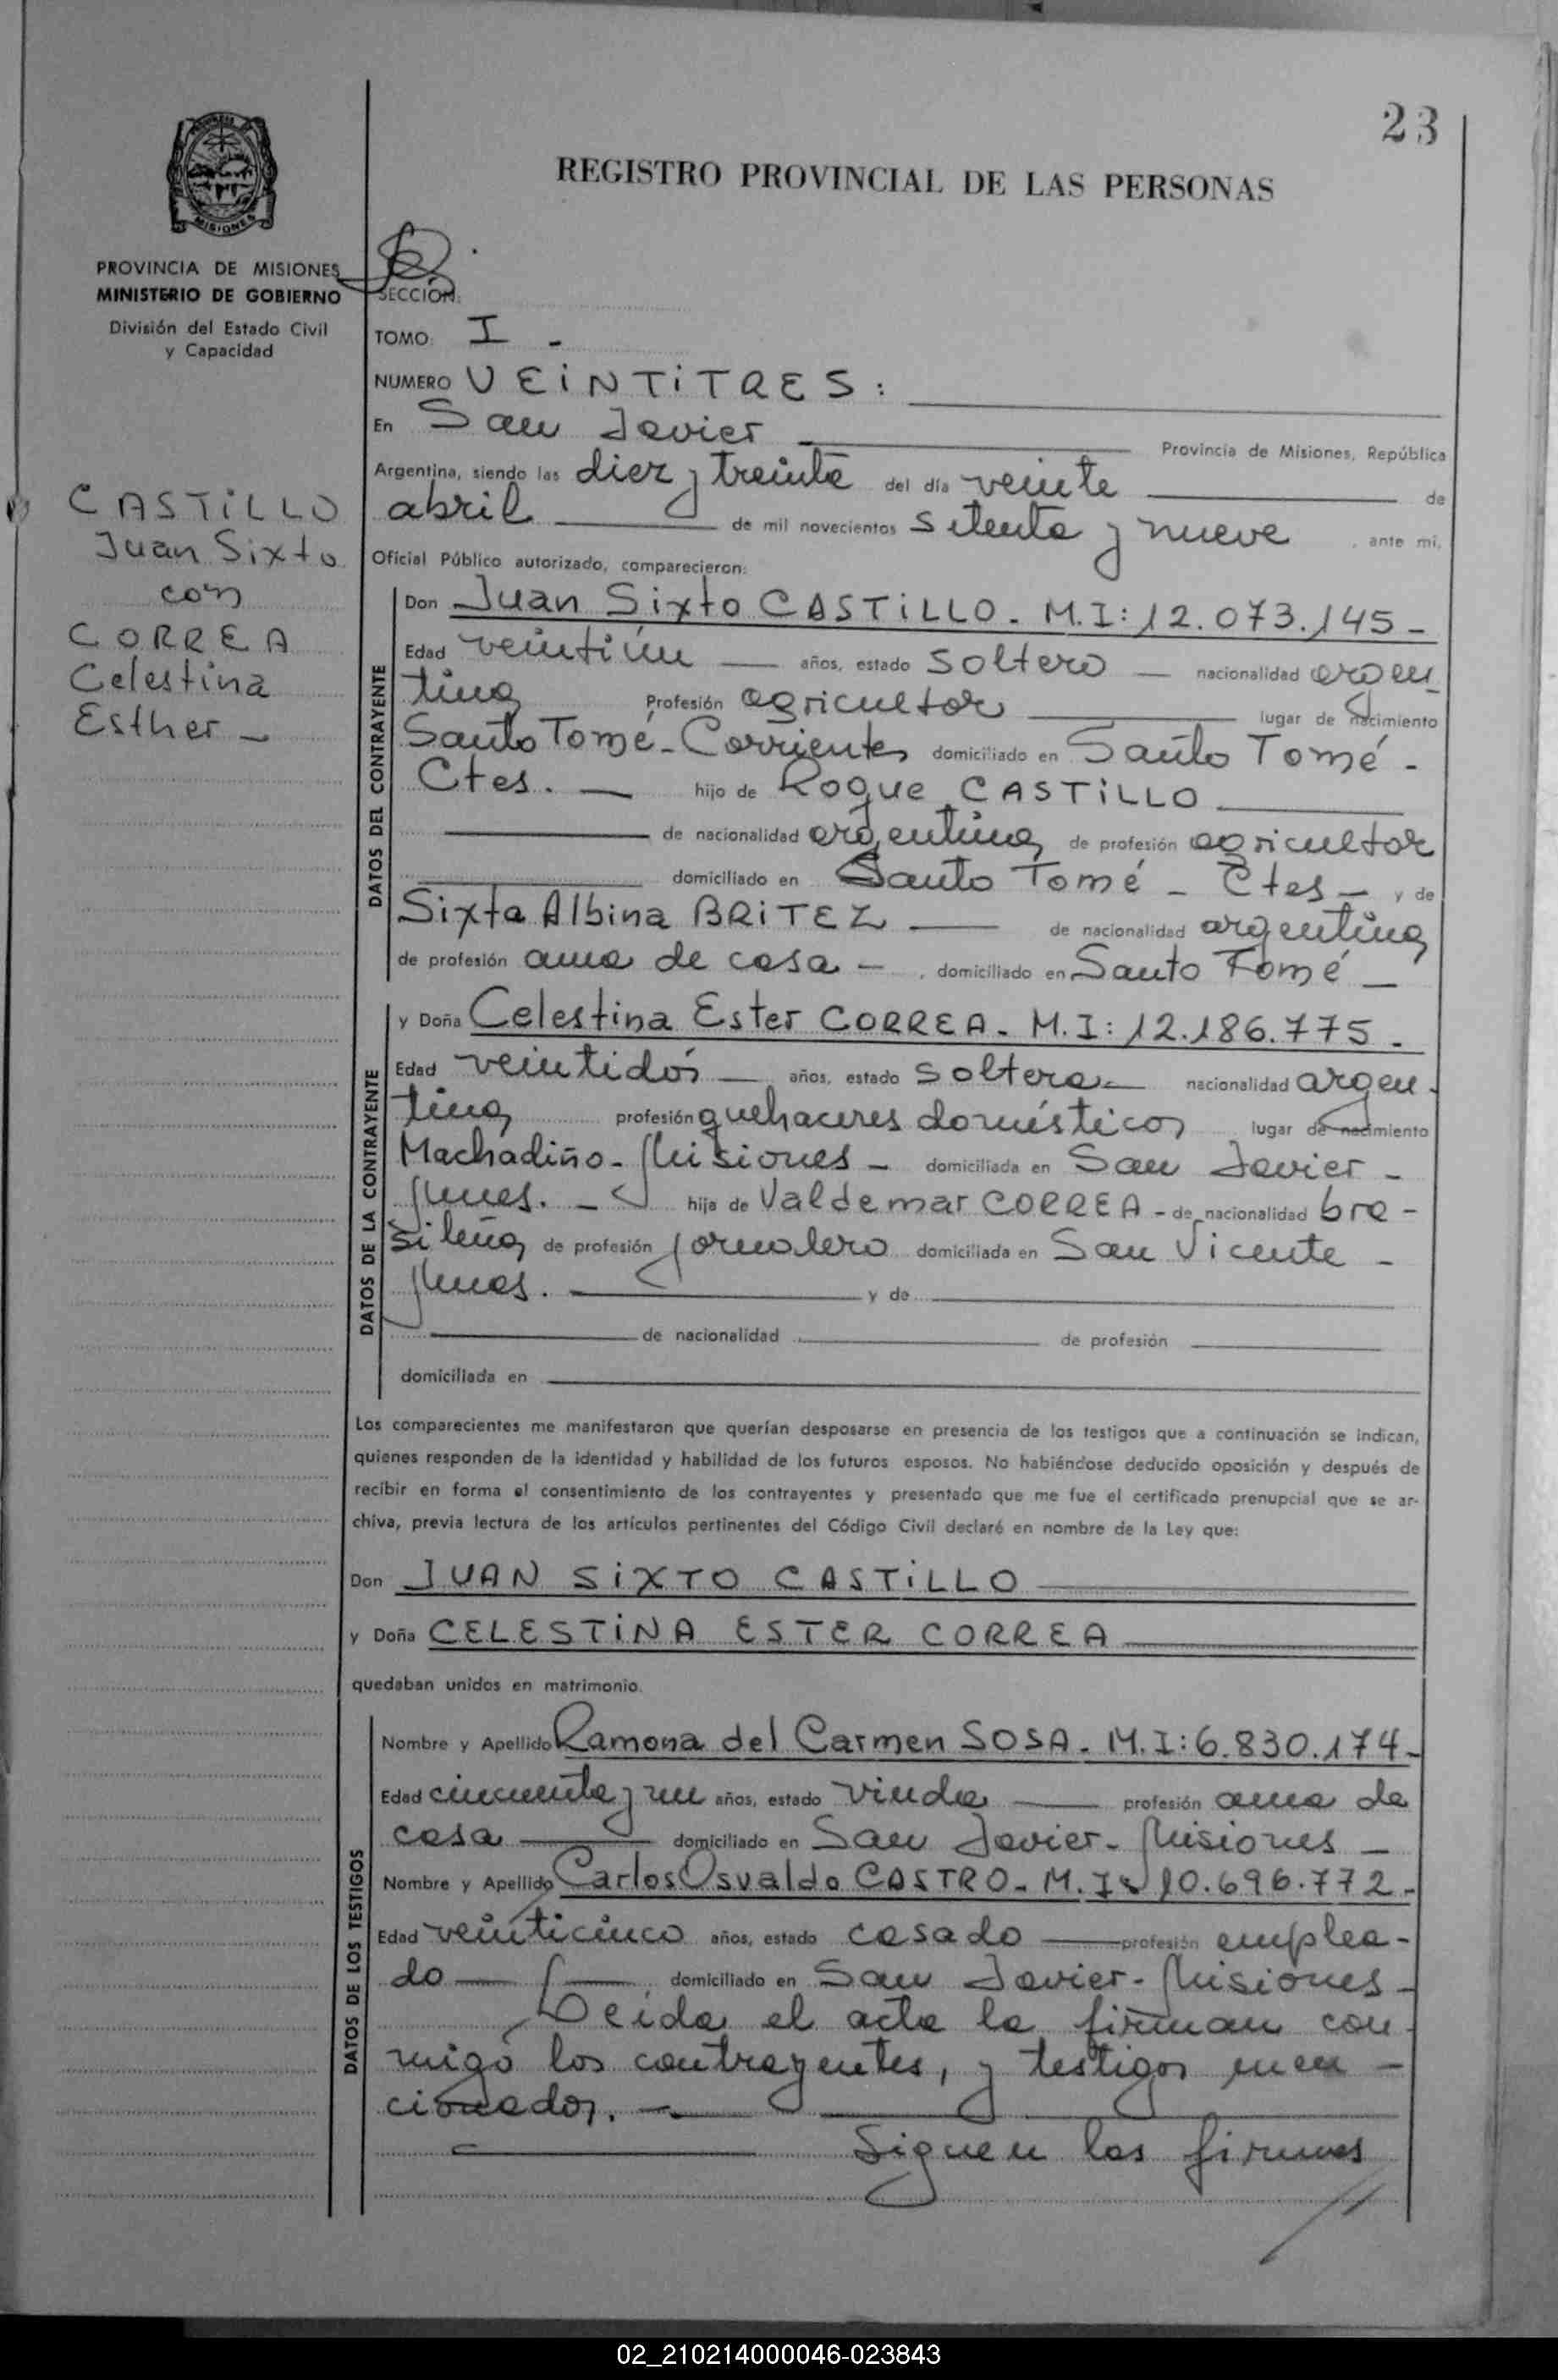 23
REGISTRO PROVINCIAL DE LAS PERSONAS
MISIONES
PROVINCIA DE MISIONES
MINISTERIO DE GOBIERNO
División del Estado Civil
y Capacidad
CASTILLO
Juan Sixto
con
CORREA
Celestina
Esther -
SECCIÓN:
TOMO: I -
NUMERO VEINTITRES:
En San Javier Provincia de Misiones, República
Argentina, siendo las diez y treinta del día veinte de
abril de mil novecientos setenta y nueve, ante mí,
Oficial Público autorizado, comparecieron:
DATOS DEL CONTRAYENTE
Don Juan Sixto CASTILLO - M.I: 12.073.145 -
Edad veintiún años, estado soltero - nacionalidad argen-
tina Profesión agricultor lugar de nacimiento
Santo Tomé - Corrientes domiciliado en Santo Tomé -
Ctes. - hijo de Roque CASTILLO
de nacionalidad argentina de profesión agricultor
domiciliado en Santo Tomé - Ctes - y de
Sixta Albina BRITEZ de nacionalidad argentina
de profesión ama de casa -, domiciliado en Santo Tomé -
DATOS DE LA CONTRAYENTE
y Doña Celestina Ester CORREA - M.I: 12.186.775 -
Edad veintidós - años, estado soltera - nacionalidad argen-
tina profesión quehaceres domésticos lugar de nacimiento
Machadiño - Misiones - domiciliada en San Javier -
Mnes. - hija de Valdemar CORREA - de nacionalidad bra-
sileña de profesión jornalero domiciliada en San Vicente -
Mnes. y de
de nacionalidad de profesión
domiciliada en
Los comparecientes me manifestaron que querían desposarse en presencia de los testigos que a continuación se indican,
quienes responden de la identidad y habilidad de los futuros esposos. No habiéndose deducido oposición y después de
recibir en forma el consentimiento de los contrayentes y presentado que me fue el certificado prenupcial que se ar-
chiva, previa lectura de los artículos pertinentes del Código Civil declaré en nombre de la Ley que:
Don JUAN SIXTO CASTILLO
y Doña CELESTINA ESTER CORREA
quedaban unidos en matrimonio.
DATOS DE LOS TESTIGOS
Nombre y Apellido Ramona del Carmen SOSA - M.I: 6.830.174 -
Edad cincuenta y un años, estado viuda profesión ama de
casa domiciliado en San Javier - Misiones -
Nombre y Apellido Carlos Osvaldo CASTRO - M.I: 10.696.772 -
Edad veinticinco años, estado casado profesión emplea-
do domiciliado en San Javier - Misiones -
Leída el acta la firman con-
migo los contrayentes, y testigos men-
cionados. -
Siguen las firmas
//
02_210214000046-023843